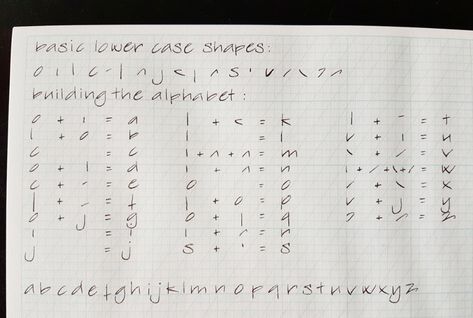 basic lower case shapes:
o ı l c - | n j < ( r s ' v / \ ? ~
building the alphabet:
o + ı = a   l + < = k   l + - = t
l + o = b   l = l   v + ı = u
c = c   ı + n + n = m   \ + / = v
o + l = d   ı + n = n   \ + / + \ + / = w
c + - = e   o = o   / + \ = x
l + - = f   l + o = p   v + j = y
o + j = g   o + l = q
i = i   ı + r = r
j = j   s + ' = s
a b c d e f g h i j k l m n o p q r s t u v w x y z